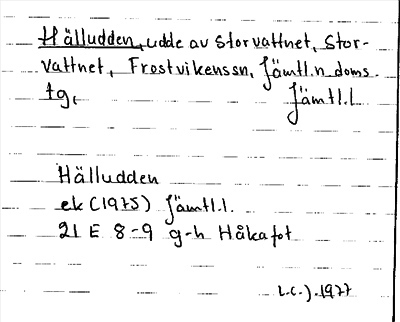 Hälludden, udde av Storvattnet, Stor-
vattnet, Frostvikenssn, Jämtl.n doms.
tg, Jämtl.l
Hälludden
ek (1975) Jämtl.l.
21 E 8-9 g-h Håkafot
L.C.J. 1977